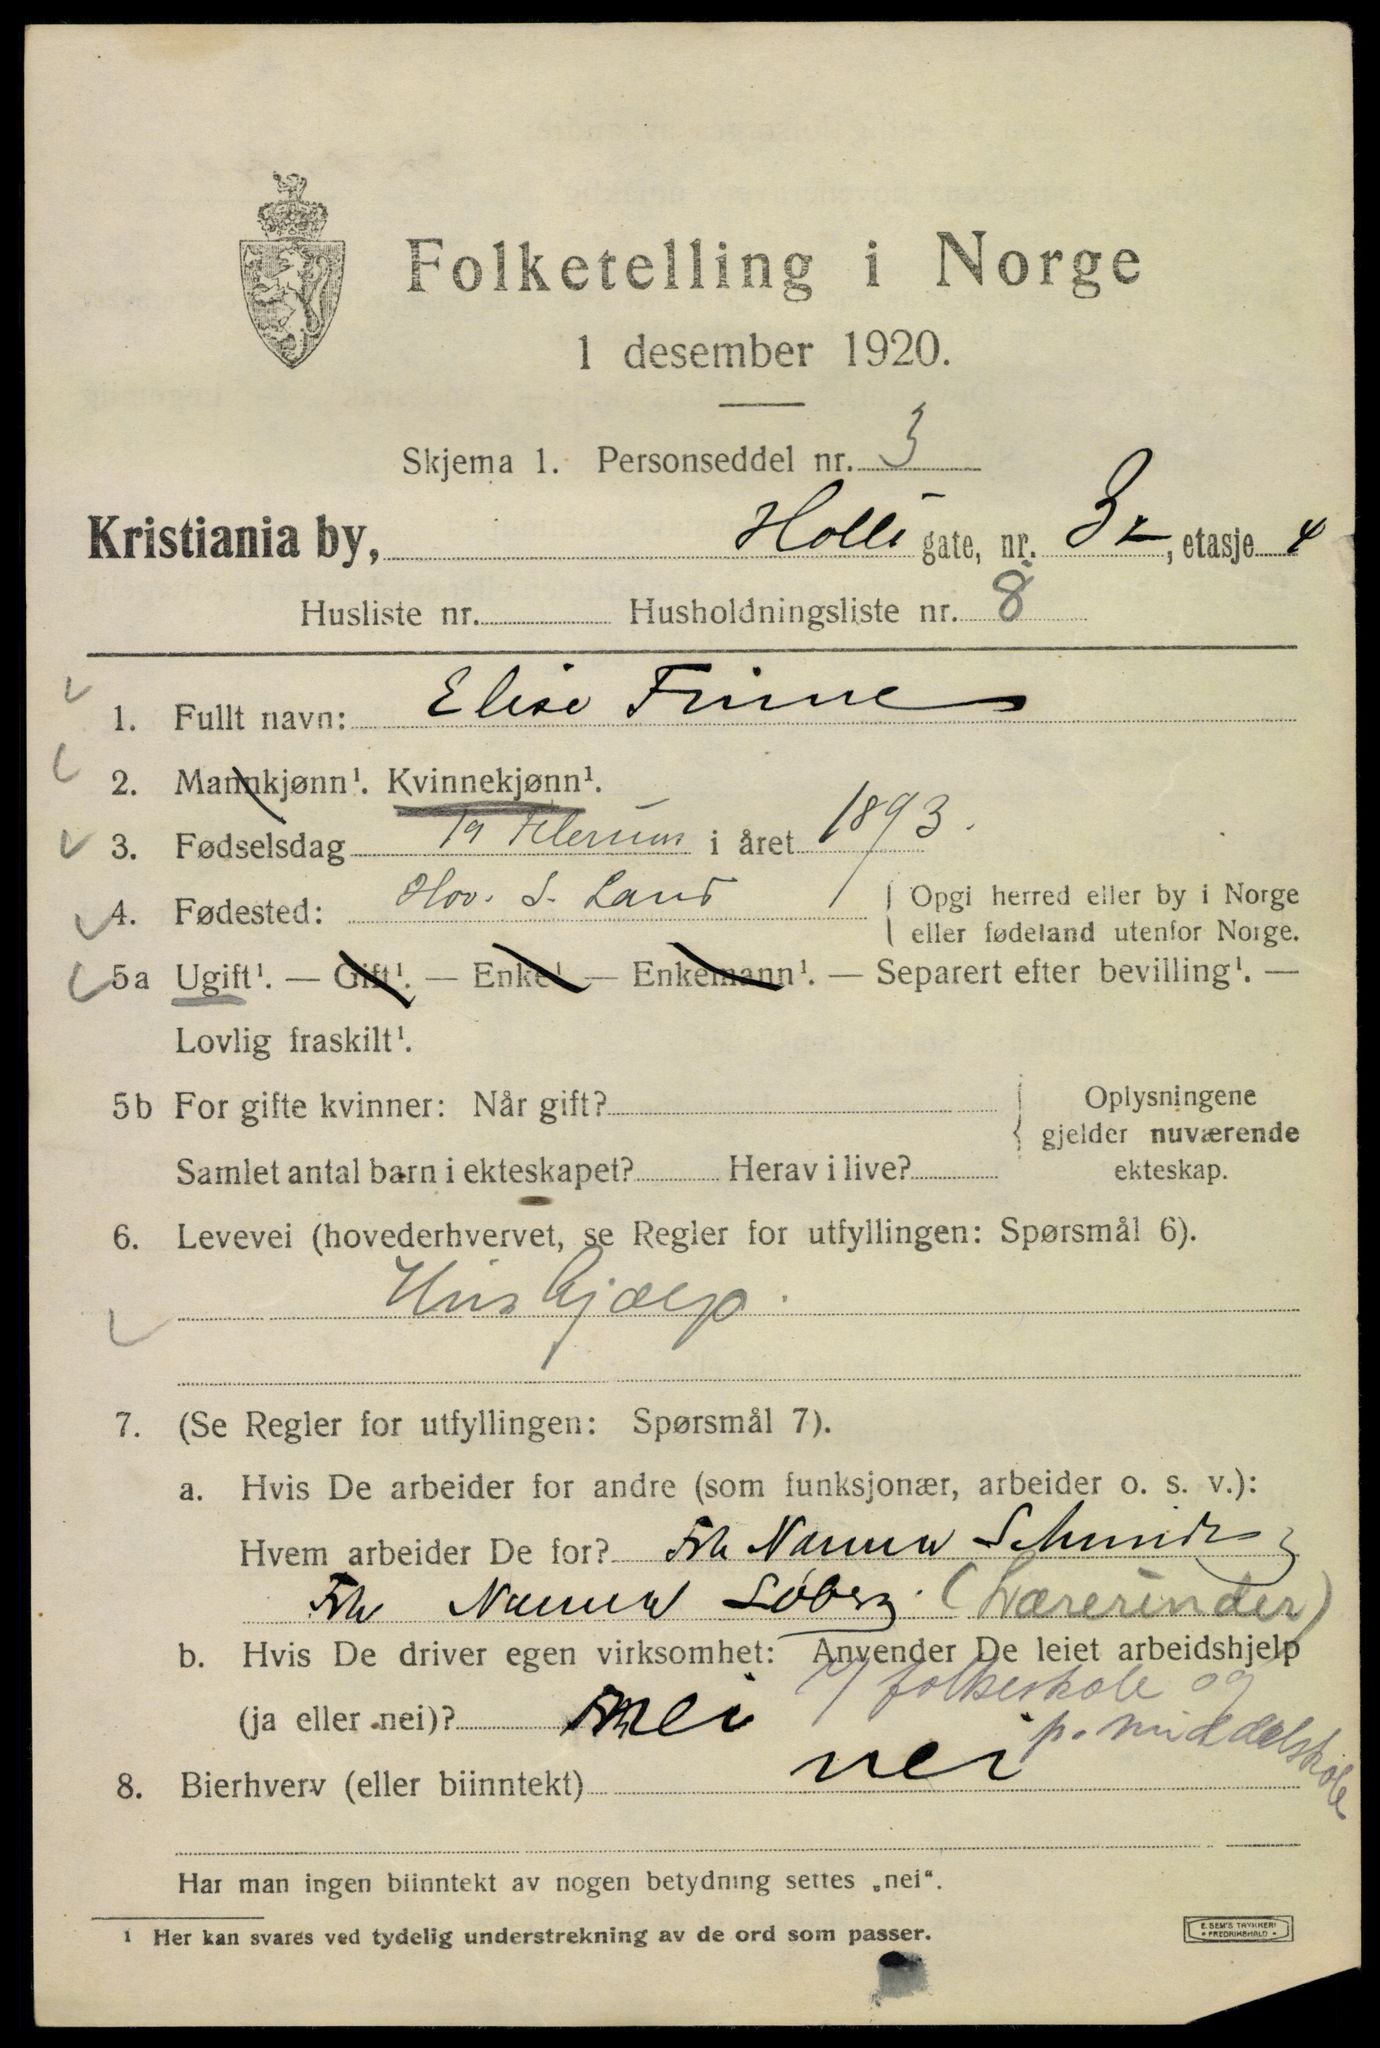 Folketelling i Norge
1 desember 1920.
Skjema 1. Personseddel nr. 3
Kristiania by, Holli gate, nr. 3, etasje 4
Husliste nr. Husholdningsliste nr. 8
1. Fullt navn: Elise Finne
2. Mannkjønn¹. Kvinnekjønn¹.
3. Fødselsdag 19 i året 1893.
4. Fødested: Hov. S. Land { Opgi herred eller by i Norge
eller fødeland utenfor Norge.
5a Ugift¹. — Gift¹. — Enke¹ — Enkemann¹. — Separert efter bevilling¹. —
Lovlig fraskilt¹.
5b For gifte kvinner: Når gift? { Oplysningene
gjelder nuværende
Samlet antal barn i ekteskapet? Herav i live? ekteskap.
6. Levevei (hovederhvervet, se Regler for utfyllingen: Spørsmål 6).
Hushjælp.
7. (Se Regler for utfyllingen: Spørsmål 7).
a. Hvis De arbeider for andre (som funksjonær, arbeider o. s. v.):
Hvem arbeider De for? Frk Nanna Schmidt
Frk Nanna Søberg. (Lærerinder)
b. Hvis De driver egen virksomhet: Anvender De leiet arbeidshjelp
v/ folkeskole og
(ja eller nei)? nei
p. middelskole
8. Bierhverv (eller biinntekt) nei
Har man ingen biinntekt av nogen betydning settes „nei“.
¹ Her kan svares ved tydelig understrekning av de ord som passer.
E. SEM'S TRYKKERI
FREDRIKSHALD